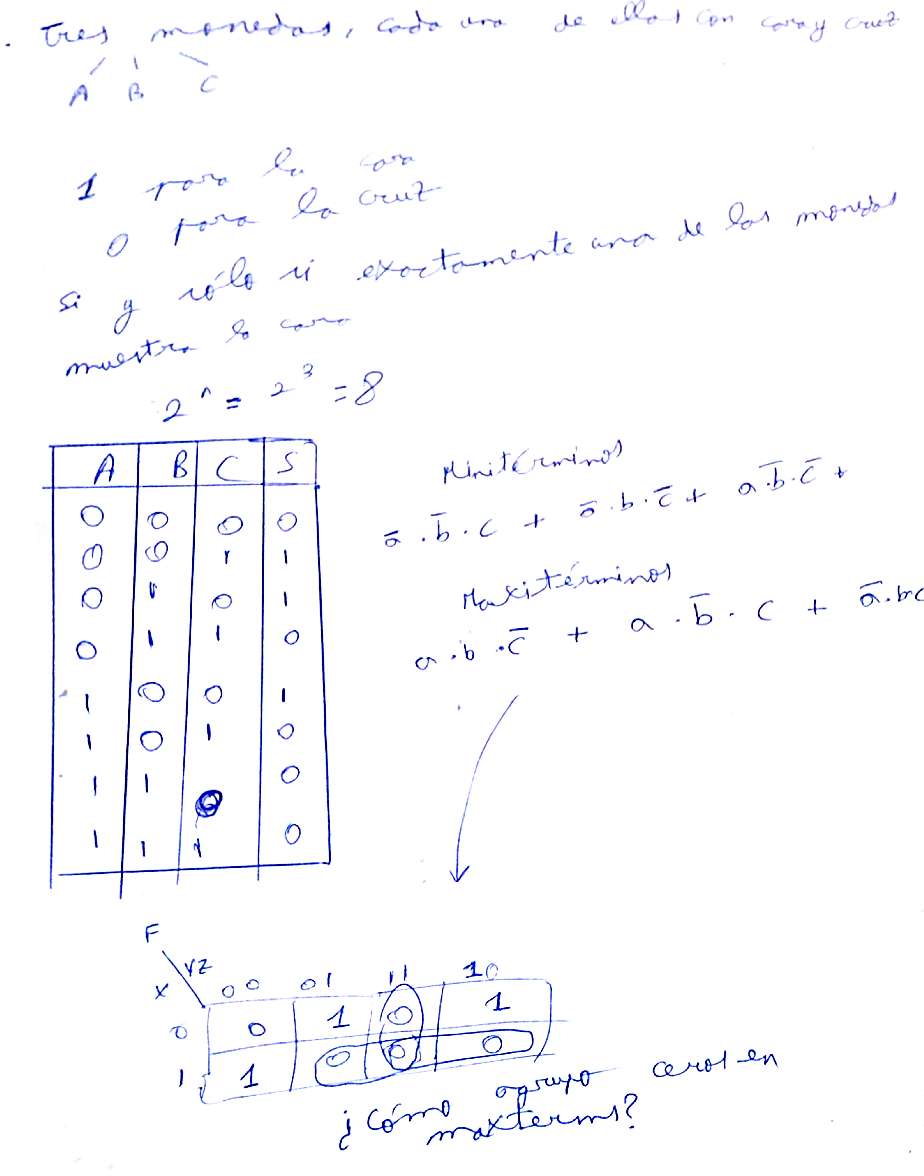 . tres monedas, cada una de ellas con cara y cruz
A B C
1 para la cara
0 para la cruz
Si y sólo si exactamente una de las monedas
muestra la cara
2^n = 2^3 = 8
A B C S
0 0 0 0
0 0 1 1
0 1 0 1
0 1 1 0
1 0 0 1
1 0 1 0
1 1 0 0
1 1 1 0
Minitérminos
a̅ . b̅ . c + a̅ . b . c̅ + a b̅ . c̅ +
Maxitérminos
a . b . c̅ + a . b̅ . c + a̅ . bc
F
YZ
X 00 01 11 10
0 0 1 0 1
1 1 0 0 0
¿Cómo agrupo ceros en
maxterms?